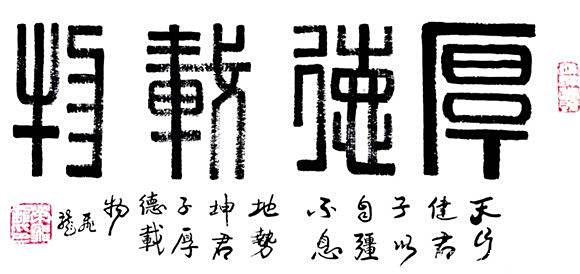 厚德載物
天行
健君
子以
自彊
不息
地勢
坤君
子厚
德載
物